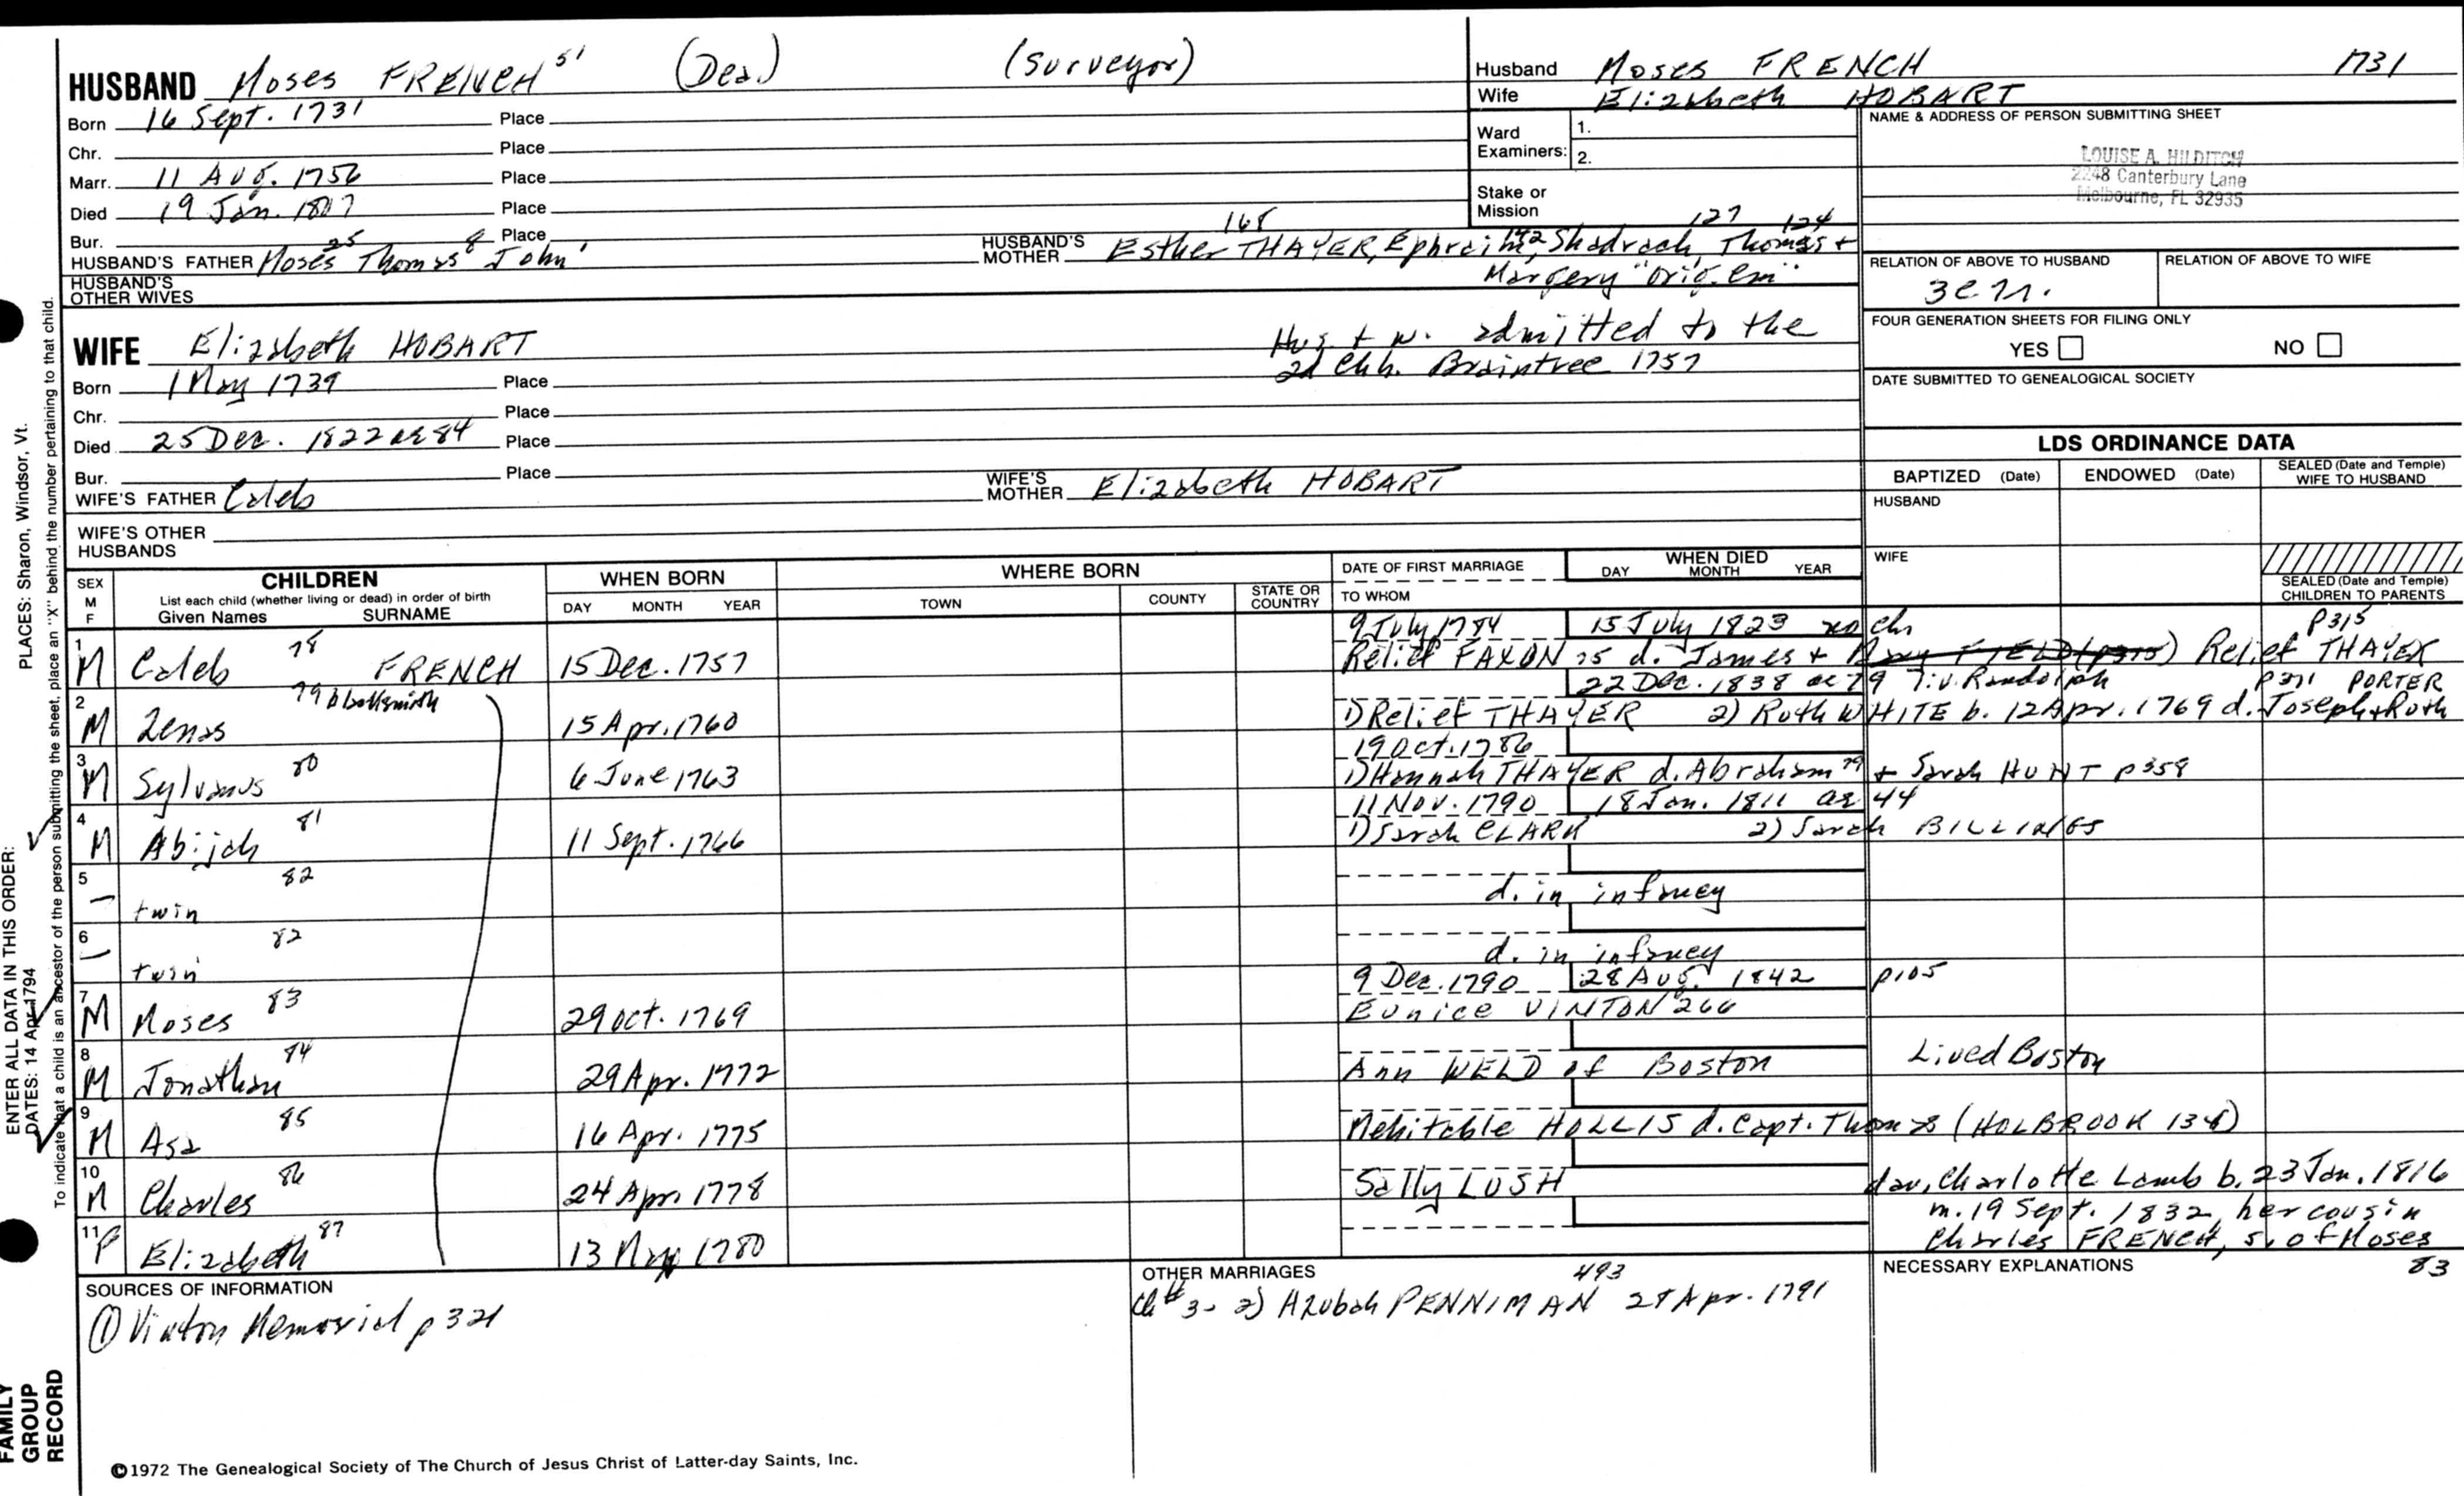 HUSBAND Moses FRENCH 51 (Dea.) (Surveyor)
Born 16 Sept. 1731 Place
Chr. Place
Marr. 11 Aug. 1756 Place
Died 19 Jan. 1807 Place
Bur. Place
HUSBAND'S FATHER Moses 25 Thomas 8 John 1
HUSBAND'S MOTHER Esther THAYER, 168 Ephraim 142 Shadrach, 127 Thomas 124 +
Margery "orig. em"
HUSBAND'S OTHER WIVES
Husband Moses FRENCH 1731
Wife Elizabeth HOBART
Ward Examiners: 1.
2.
Stake or Mission
NAME & ADDRESS OF PERSON SUBMITTING SHEET
LOUISE A. HILDITCH
2248 Canterbury Lane
Melbourne, FL 32935
RELATION OF ABOVE TO HUSBAND
RELATION OF ABOVE TO WIFE
FOUR GENERATION SHEETS FOR FILING ONLY
YES NO
DATE SUBMITTED TO GENEALOGICAL SOCIETY
WIFE Elizabeth HOBART
Hus. + w. admitted to the
2d Chh. Braintree 1757
Born 1 May 1739 Place
Chr. Place
Died 25 Dec. 1822 ae 84 Place
Bur. Place
WIFE'S FATHER Caleb
WIFE'S MOTHER Elizabeth HOBART
WIFE'S OTHER HUSBANDS
LDS ORDINANCE DATA
BAPTIZED (Date) ENDOWED (Date) SEALED (Date and Temple) WIFE TO HUSBAND
HUSBAND
WIFE
SEALED (Date and Temple) CHILDREN TO PARENTS
SEX M F
CHILDREN
List each child (whether living or dead) in order of birth
Given Names SURNAME
WHEN BORN
DAY MONTH YEAR
WHERE BORN
TOWN COUNTY STATE OR COUNTRY
DATE OF FIRST MARRIAGE
TO WHOM
WHEN DIED
DAY MONTH YEAR
9 July 1784 15 July 1823 no chn P315
1 M Caleb 78 FRENCH 15 Dec. 1757 Relief FAXON 75 d. James + Relief THAYER
22 Dec. 1838 ae 79 liv. Randolph P371 PORTER
2 M Zenas 79 15 Apr. 1760 1) Relief THAYER 2) Ruth WHITE b. 12 Apr. 1769 d. Joseph + Ruth
19 Oct. 1786
3 M Sylvanus 80 6 June 1763 1) Hannah THAYER d. Abraham 79 + Sarah HUNT p358
11 Nov. 1790 18 Jan. 1811 ae 44
4 M Abijah 81 11 Sept. 1766 1) Sarah CLARK 2) Sarah BILLINGS
5 - twin 82 d. in infancy
6 - twin 82 d. in infancy
9 Dec. 1790 28 Aug. 1842 p105
7 M Moses 83 29 Oct. 1769 Eunice VINTON 266
8 M Jonathan 84 29 Apr. 1772 Ann WELD of Boston Lived Boston
9 M Asa 85 16 Apr. 1775 Mehitable HOLLIS d. Capt. Thomas (HOLBROOK 138)
10 M Charles 86 24 Apr. 1778 Sally LUSH dau, Charlotte Lamb b. 23 Jan. 1816
m. 19 Sept. 1832, her cousin
11 F Elizabeth 87 13 May 1780 Charles FRENCH, s. of Moses 83
SOURCES OF INFORMATION
① Vinton Memorial p 321
OTHER MARRIAGES
Ch #3- 2) Azubah PENNIMAN 493 28 Apr. 1791
NECESSARY EXPLANATIONS
©1972 The Genealogical Society of The Church of Jesus Christ of Latter-day Saints, Inc.
FAMILY
GROUP
RECORD
ENTER ALL DATA IN THIS ORDER:
DATES: 14 Apr 1794
PLACES: Sharon, Windsor, Vt.
To indicate that a child is an ancestor of the person submitting the sheet, place an "X" behind the number pertaining to that child.